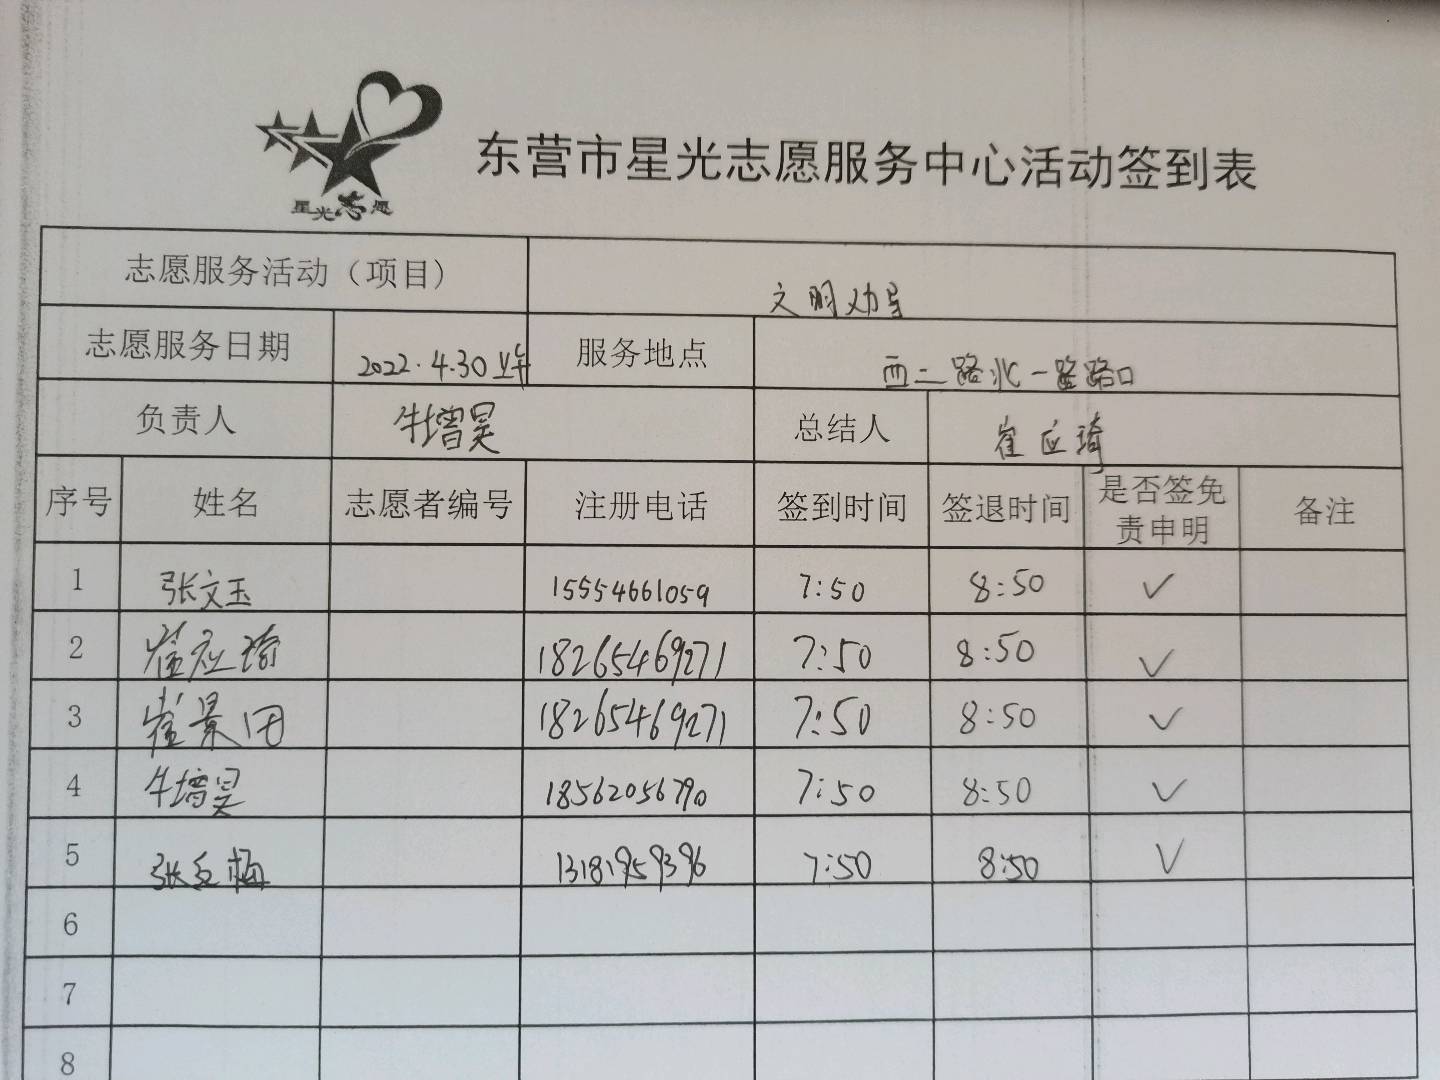 星光志愿
东营市星光志愿服务中心活动签到表
志愿服务活动（项目） 文明劝导
志愿服务日期 2022.4.30 上午 服务地点 西二路北一路路口
负责人 牛增昊 总结人 崔应琦
序号 姓名 志愿者编号 注册电话 签到时间 签退时间 是否签免责申明 备注
1 张文玉 15554661059 7:50 8:50 ✓
2 崔应琦 18265469271 7:50 8:50 ✓
3 崔景团 18265469271 7:50 8:50 ✓
4 牛增昊 18562056790 7:50 8:50 ✓
5 张红梅 13181959396 7:50 8:50 ✓
6
7
8